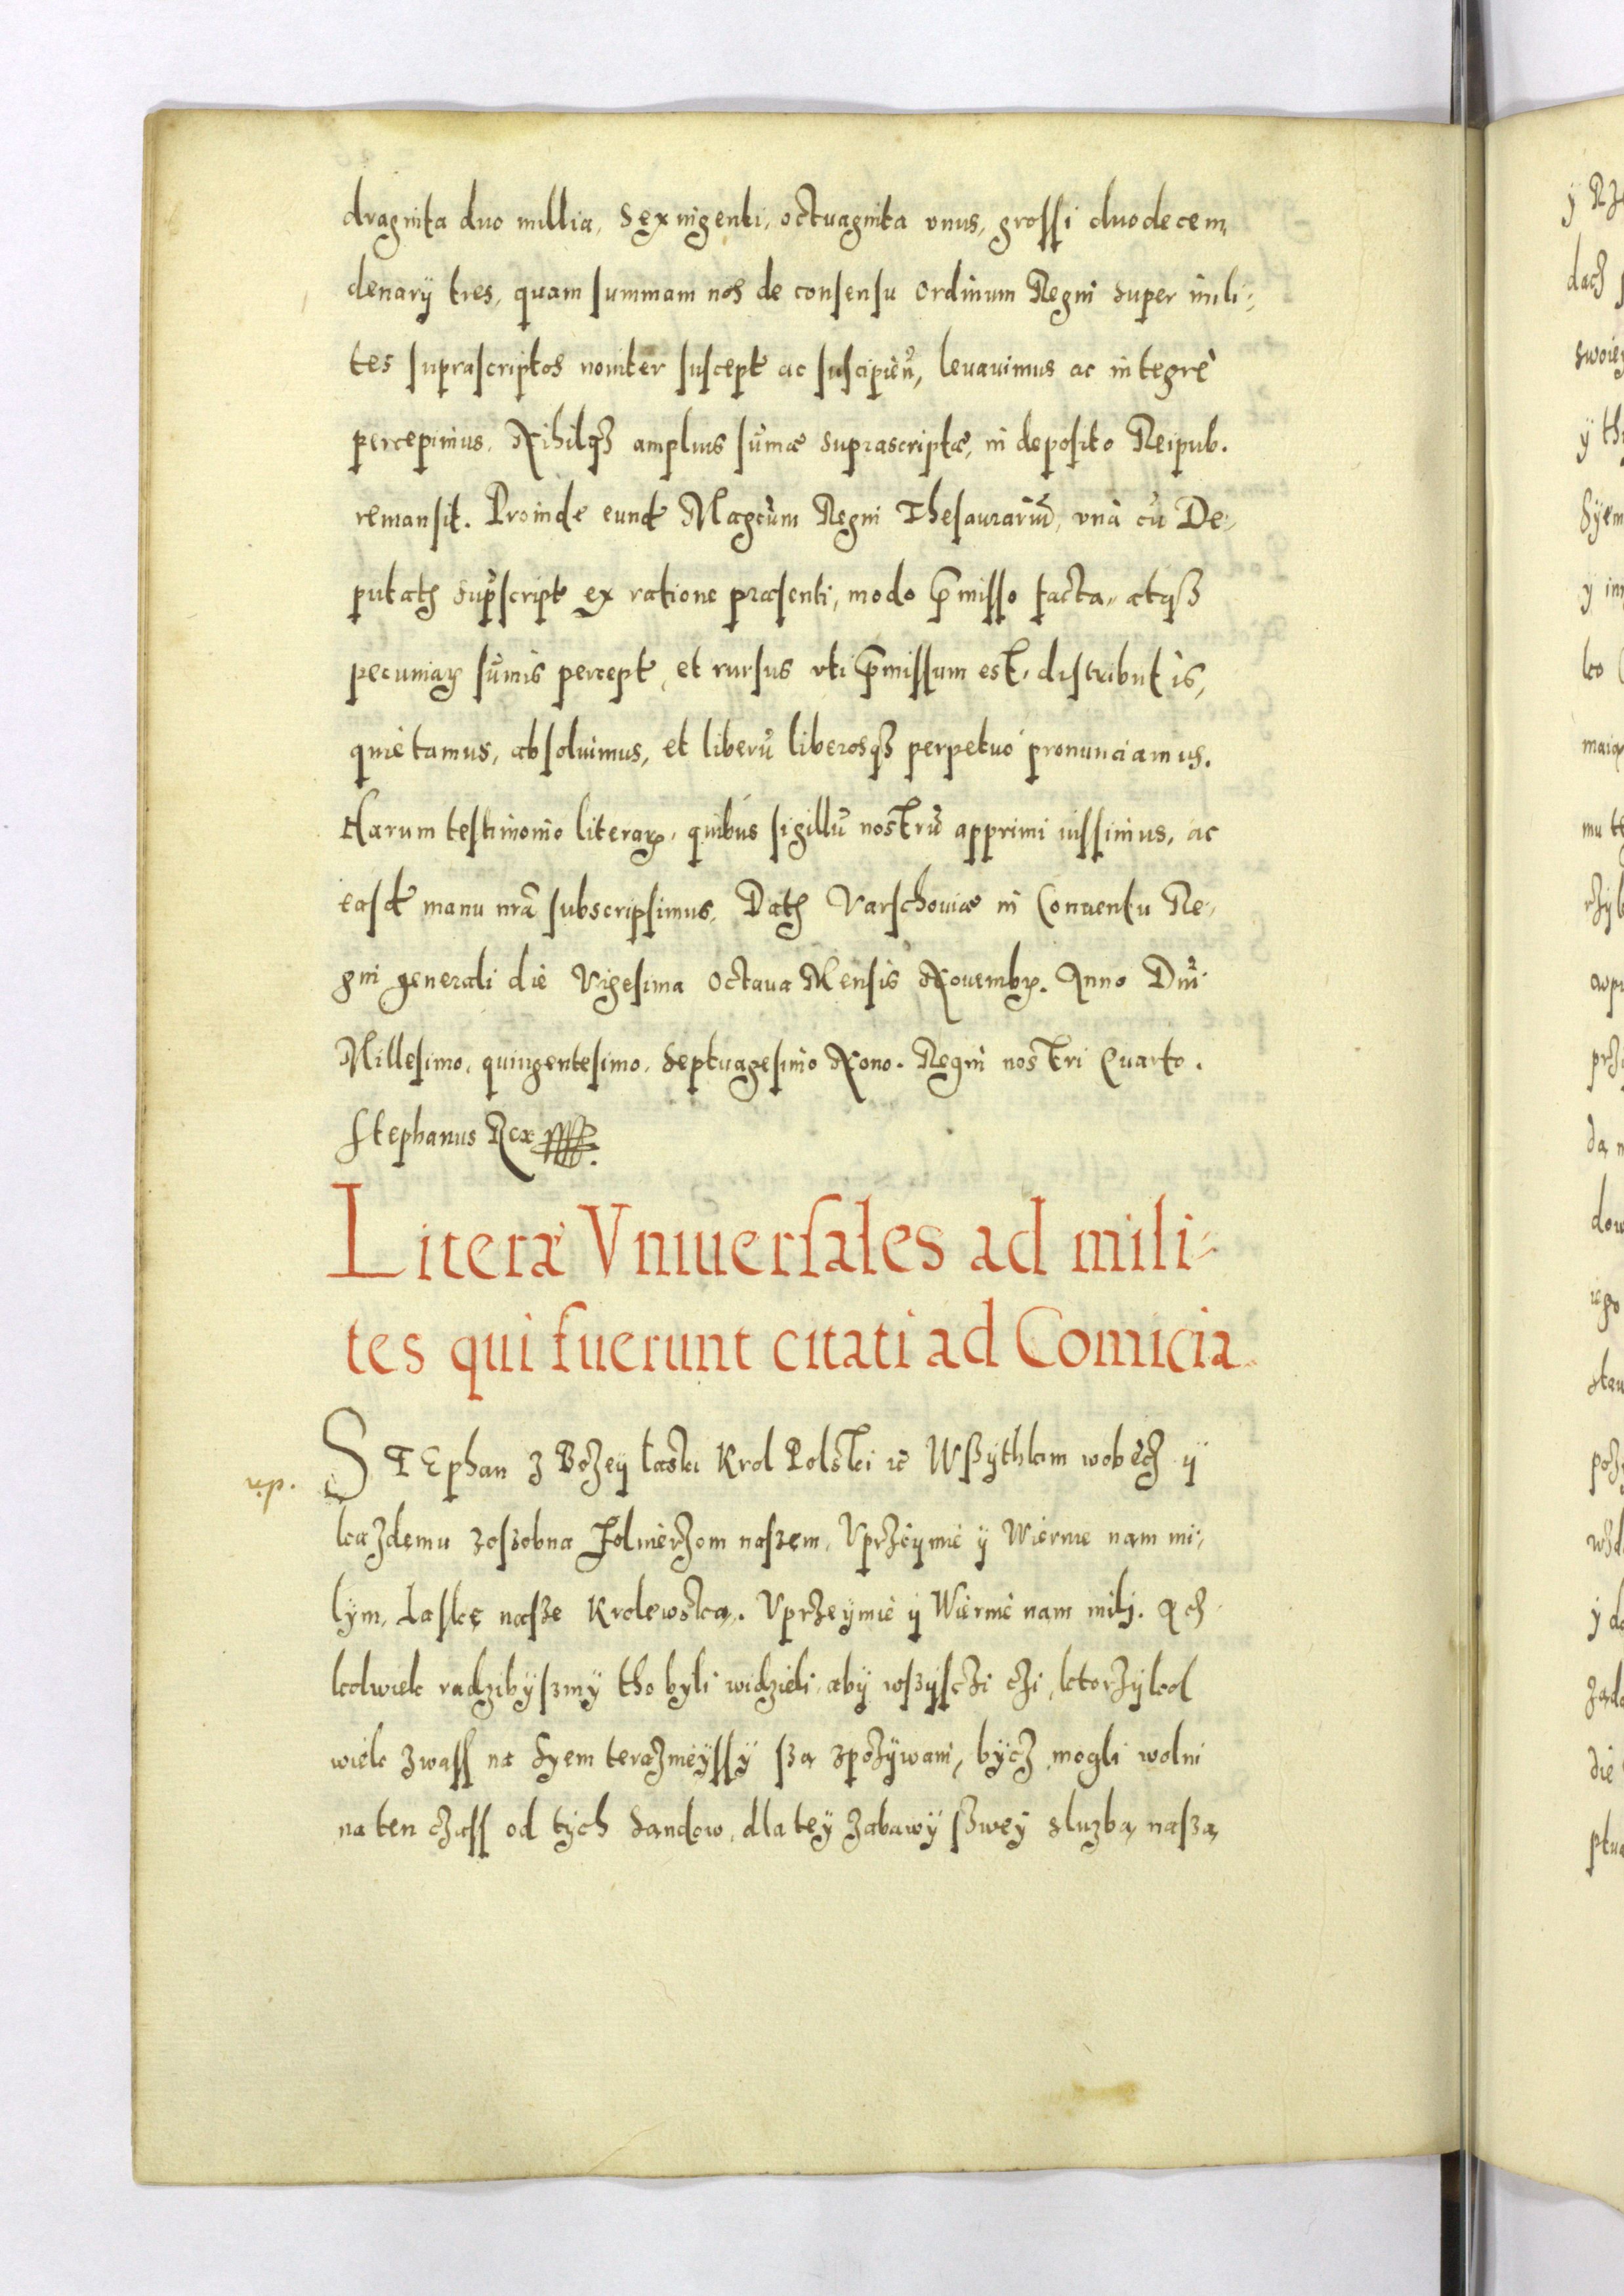 draginta duo millia, Sexingenti, octuaginta vnus, grossi duodecem,
denarÿ tres, quam summam nos de consensu Ordinum Regni super mili:
tes suprascriptos noniter suscept ac suscipień, leuauimus ac integrè
percepimus, Nihilqȝ amplius sum̃æ suprascriptæ, in deposito Reipub.
remansit. Proinde eund Magcum Regni Thesaurariũ, vnà cũ De:
putatꝭ suprscript ex ratione præsenti, modo p̃misso facta, atqȝ
pecuniaꝝ sum̃is percept, et rursus vti p̃missum est, distributis,
quietamus, absoluimus, et liberũ liberosqȝ perpetuó pronunciamus.
Harum testimonio literaꝝ, quibus sigillũ nostrũ apprimi iussimus, ac
easd manu nrã subscripsimus, Datꝭ Varschouiæ in Conuentu Re:
gni generali die Vigesima Octaua Mensis Nouembꝝ. Anno Dñi
Millesimo, quingentesimo, Septuagesimo Nono. Regni nostri Quarto.
Stephanus Rex
Literæ Vniuersales ad mili:
tes qui fuerunt citati ad Comicia.
STEphan z Bożey łaski Krol Polski ić Wßÿthkim wobèc ÿ
każdemu zoszobna Żolnierzom naszem, Vprzeÿmie ÿ Wiernie nam mi:
lÿm, Łaskę nasze Krolewska. Vprzeÿmie ÿ Wiernie nam mili. Acz
kolwiek radzibÿszmÿ tho byli widzieli, abÿ wszÿsczi czi, ktorzÿkol
wiek zwass na Syem teraznieÿssÿ ßa zpozÿwani, bÿcz mogli wolni
na ten czass od tÿch Sandow, dla teÿ zabawÿ ßweÿ sluzba naßa,